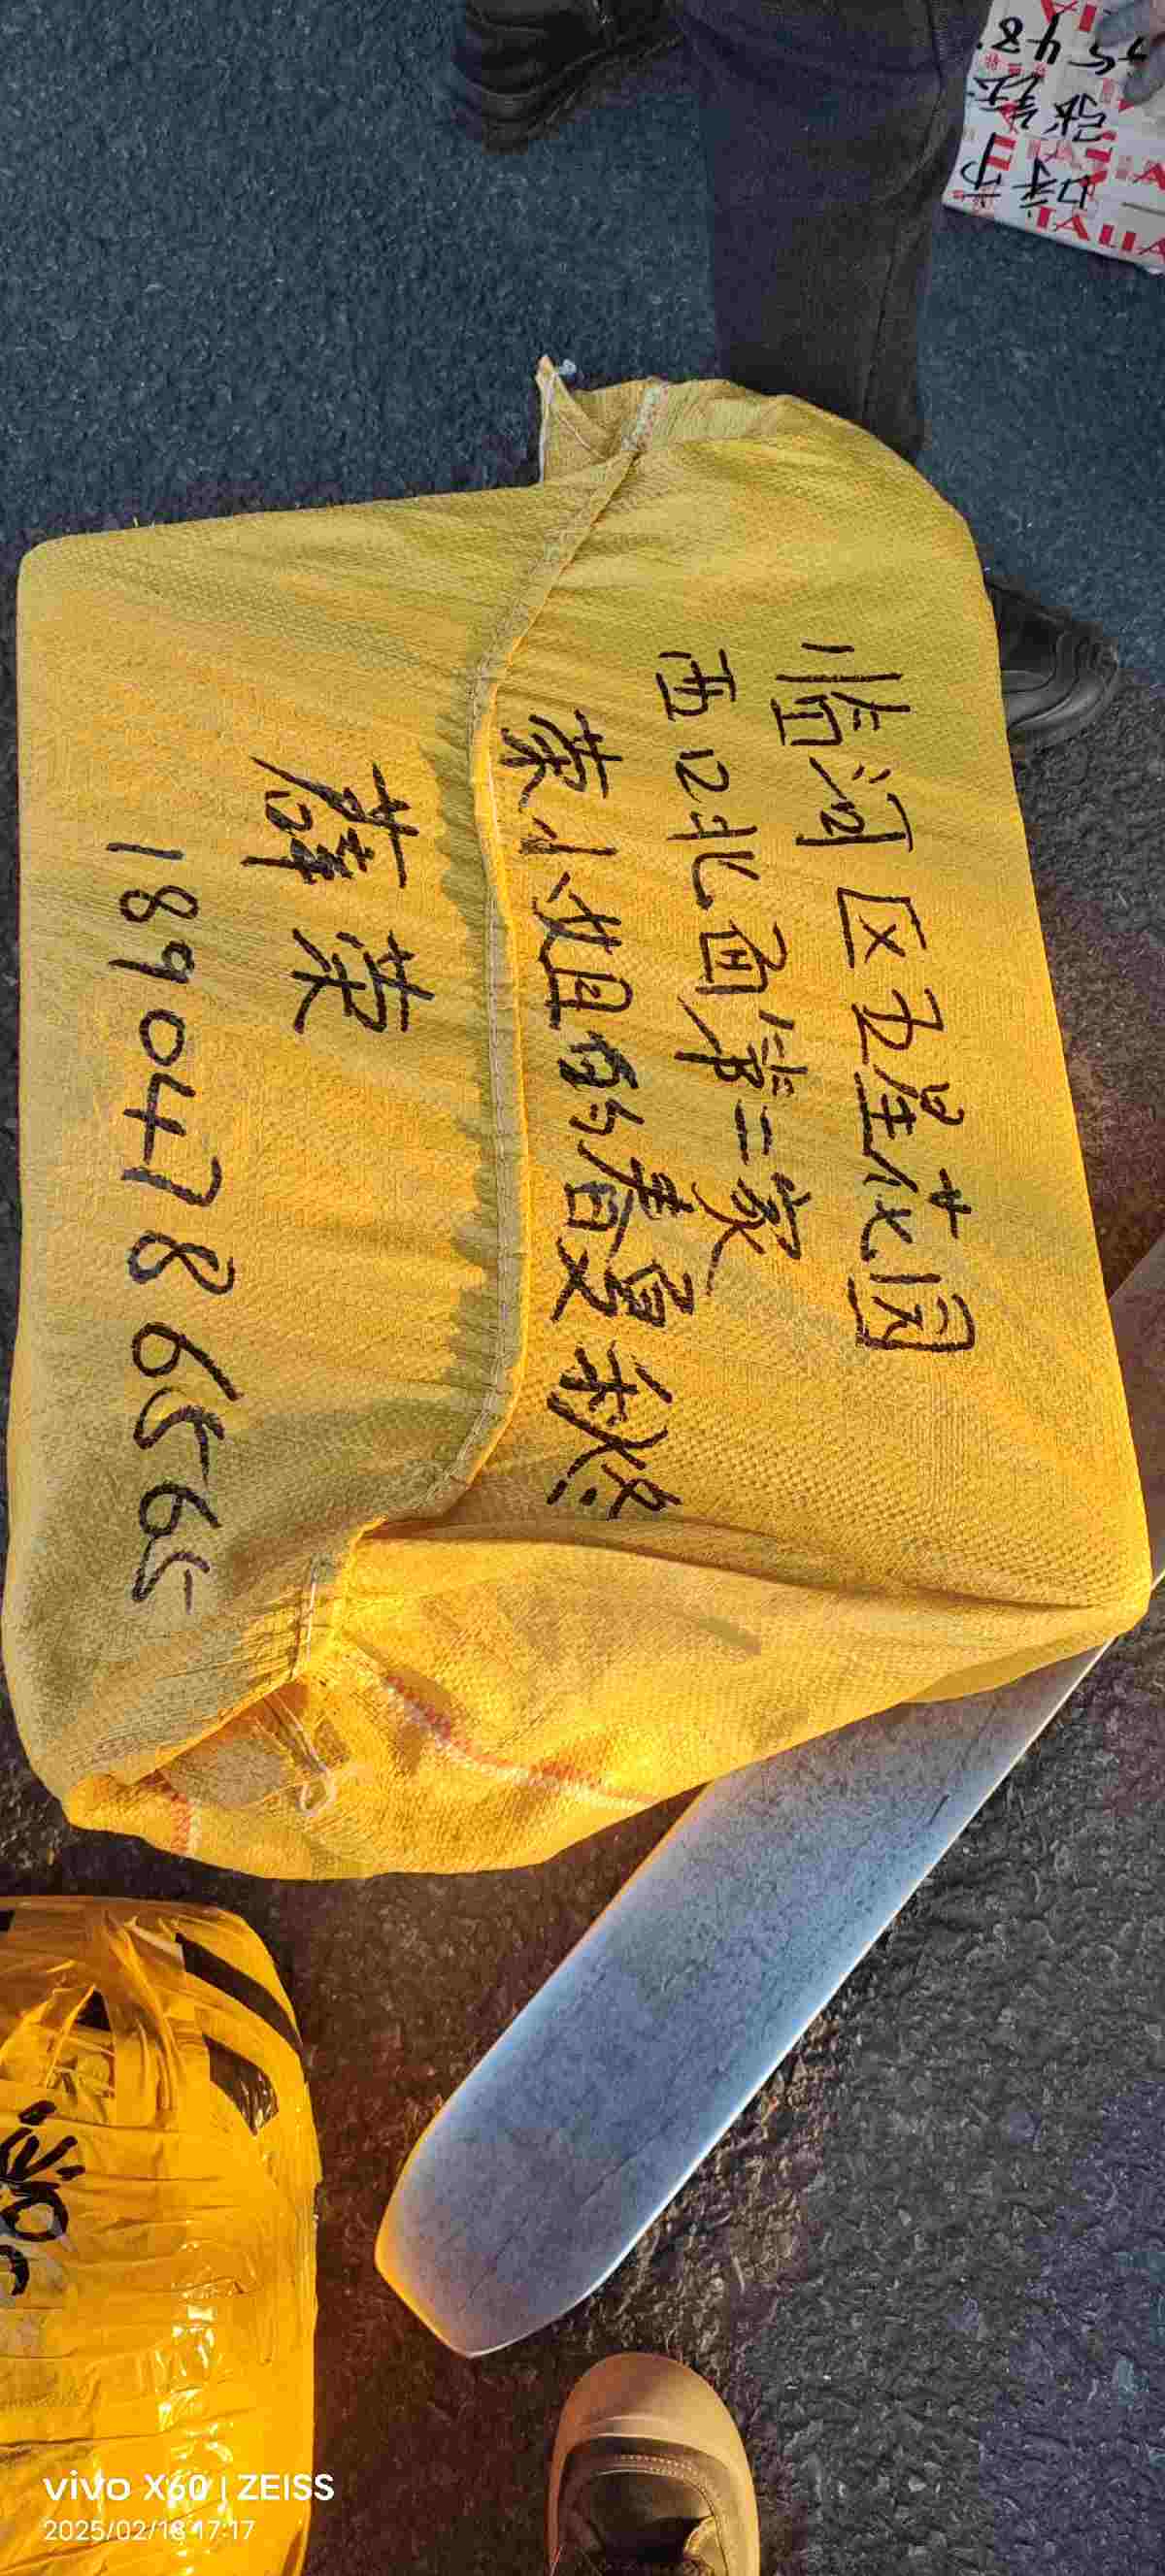 临河区五星花园
西区北面第二家
荣小姐的春夏秋冬
薛荣
18904786565
vivo X60 | ZEISS
2025/02/18 17:17